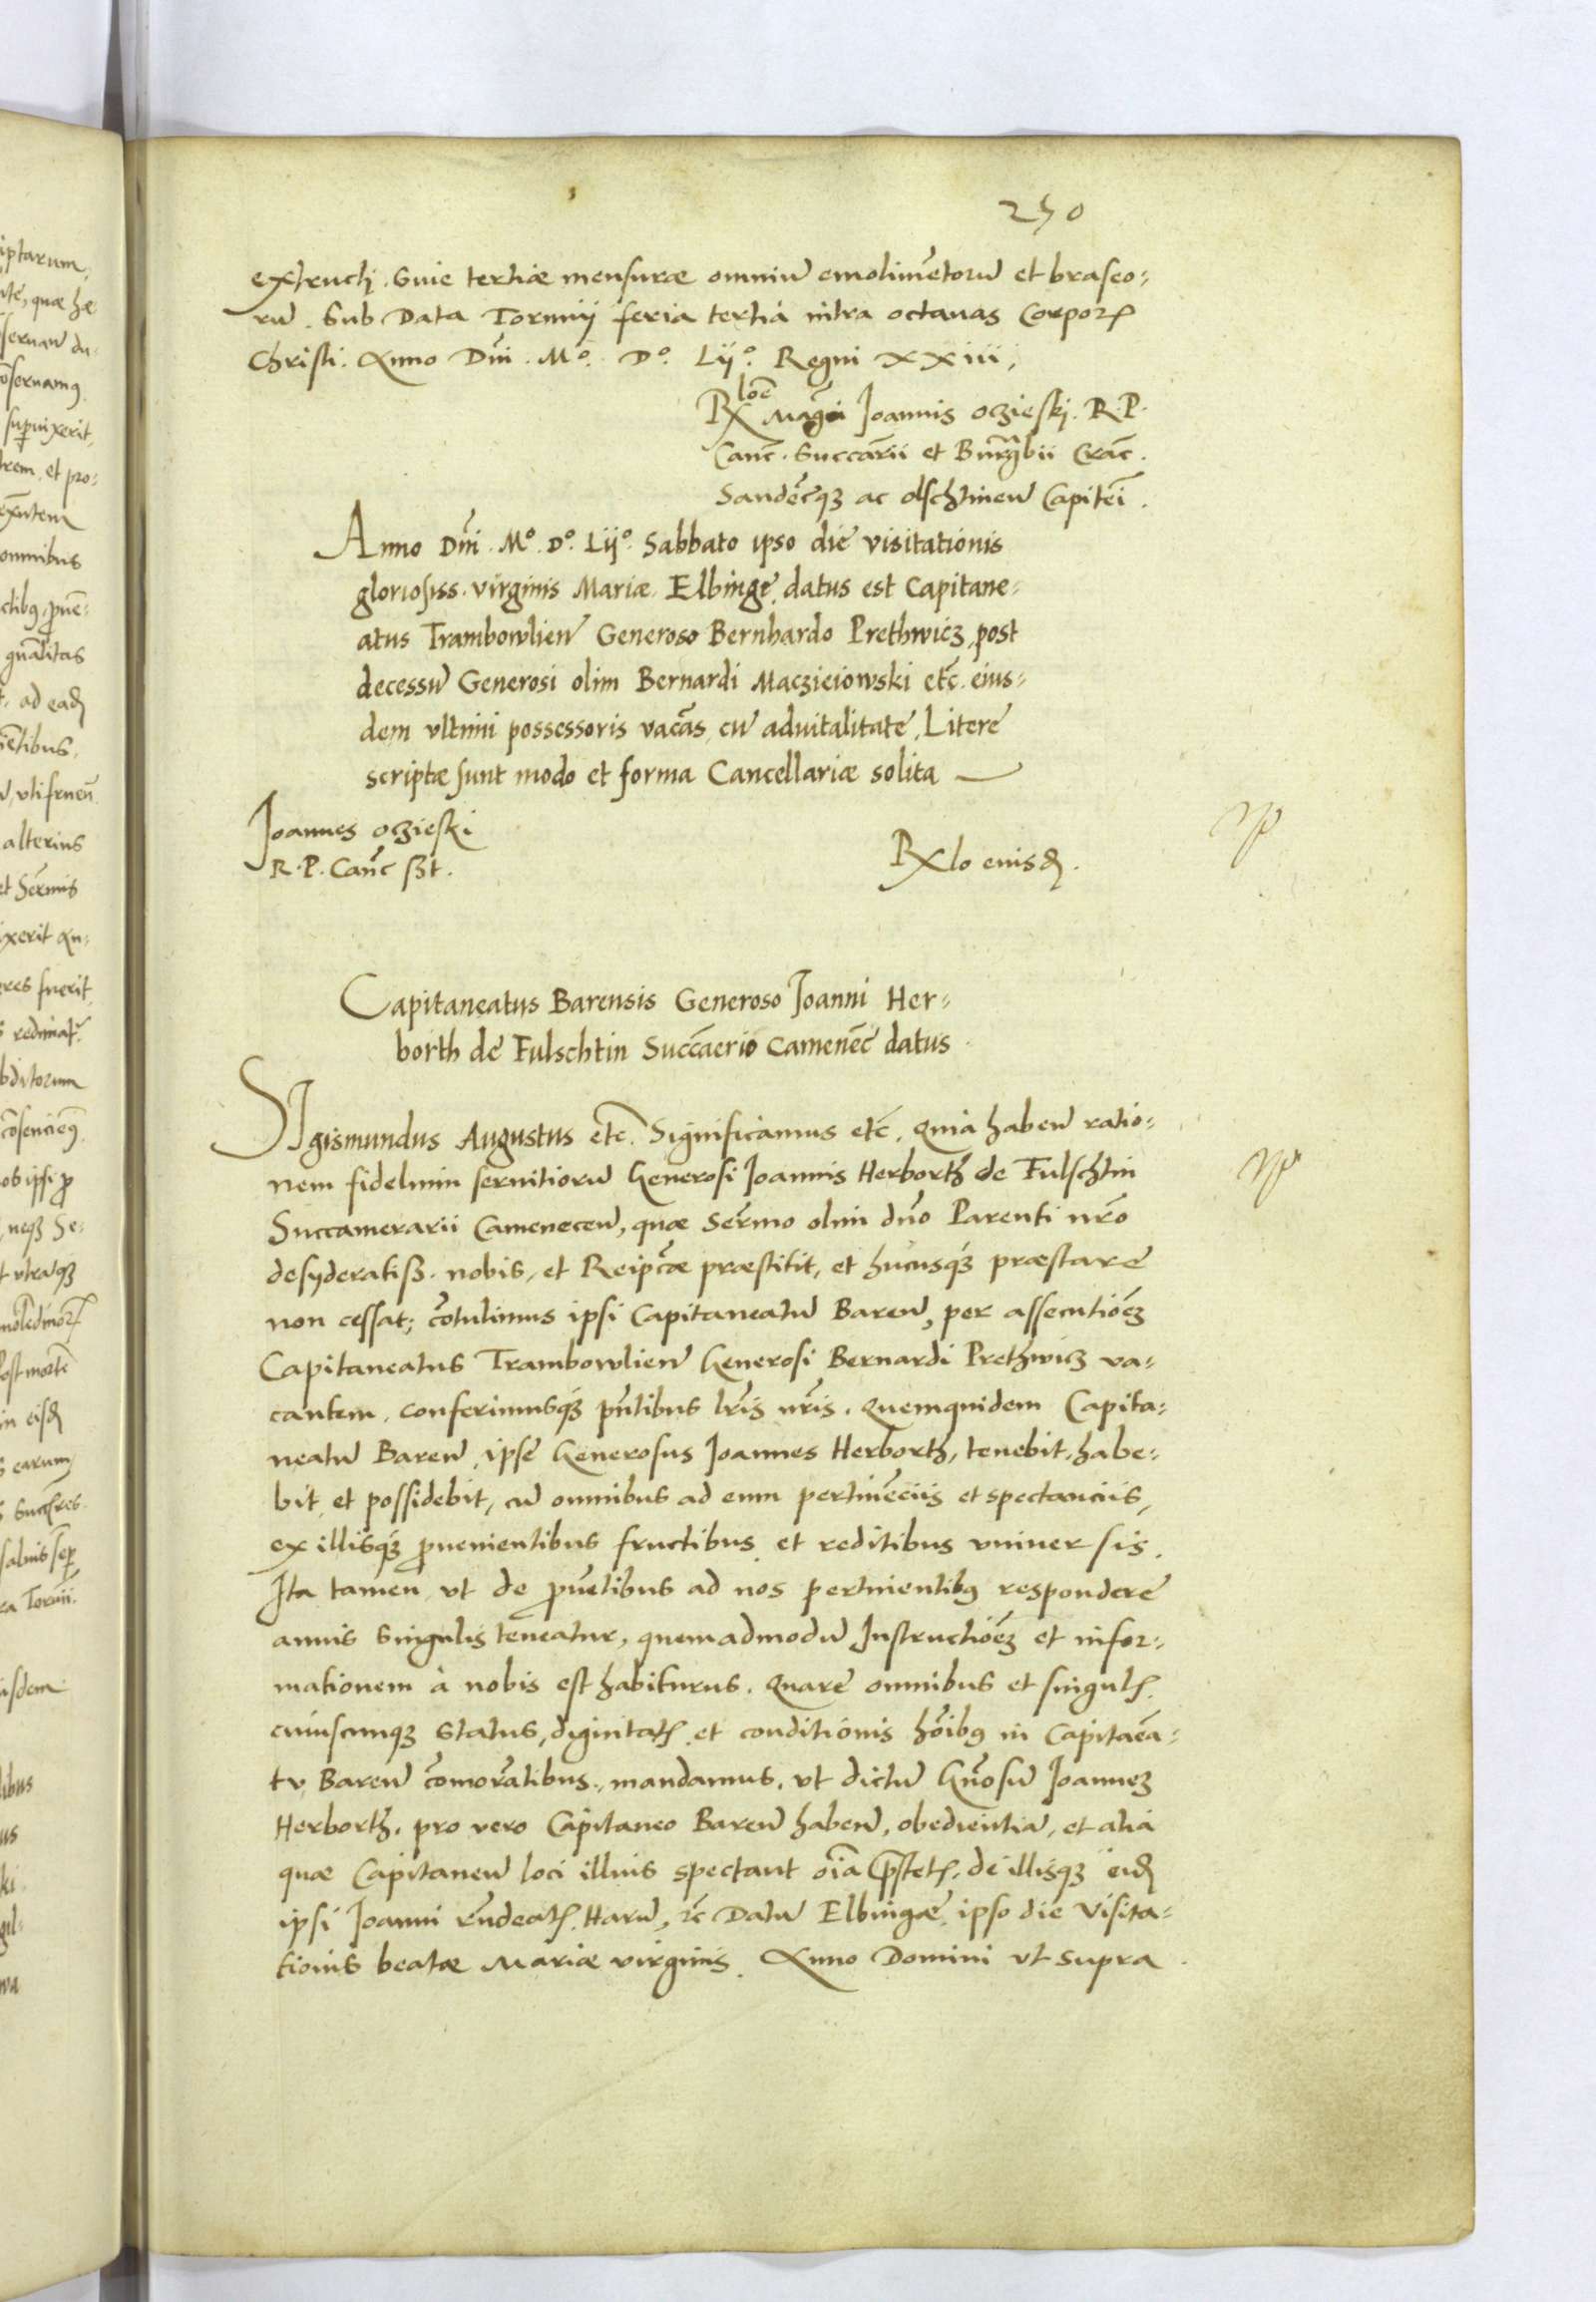 250
extructi. Siue tertiæ mensuræ omniū emolimētorū et braseo-
rū. Sub Data Torunij feria tertia intra octauas Corporꝭ
Christi. Anno Dñi. Mº. Dº. Lijº. Regni XXiii,
Rx loē Magci Joannis oczieski. R. P.
Canc̄. Succarii et Burgrabii Crac̄.
Sandēcqꝫ ac olschtinen̄ Capitēi.
Anno Dñi. Mº. Dº. Lijº. Sabbato ipso die visitationis
gloriosiss. virginis Mariæ. Elbingę. datus est Capitane-
atus Trambowlien̄ Generoso Bernhardo Prethwicz, post
decessū Generosi olim Bernardi Maczieiowski etc̄. eius-
dem vltimi possessoris vacās, cū aduitalitate, Litere
scriptæ sunt modo et forma Cancellariæ solita
Joannes oczieski
R. P. Canc̄ sst.
Rx lo eiusdꝭ.
Capitaneatus Barensis Generoso Joanni Her-
borth de Fulschtin Succāerio Camenec̄ datus
SIgismundus Augustus etc̄. Significamus etc̄. Quia haben̄ ratio-
nem fidelium seruitiorū Generosi Joannis Herborth de Fulschtin
Succamerarii Camenecen̄, quæ Sermo olim dn̄o Parenti nr̄o
desyderatiss. nobis, et Reipcæ præstitit, et hucusqꝫ præstare
non cessat; cōtulimus ipsi Capitaneatū Baren̄, per assecutiōeꝫ
Capitaneatus Trambowlien̄ Generosi Bernardi Prethwicz va-
cantem, conferimusqꝫ pn̄tibus lr̄is nr̄is. Quemquidem Capita-
neatū Baren̄, ipse Generosus Joannes Herborth, tenebit, habe-
bit, et possidebit, cū omnibus ad eum pertinēciis et spectanciis,
ex illisqꝫ ꝓuenientibus fructibus, et reditibus vniuersis.
Ita tamen, vt de ꝓuētibus ad nos pertinentibꝰ respondere
annis singulis teneatur, quemadmodū Instructiōeꝫ et infor-
mationem à nobis est habiturus. Quare omnibus et singulꝭ
cuiuscunqꝫ status, dignitatꝭ, et conditionis hōibꝰ in Capitaēa-
tu Baren̄ cōmorātibus, mandamus, vt dictū Gn̄osū Joanneꝫ
Herborth, pro vero Capitaneo Baren̄ haben̄, obedientiā, et alia
quæ Capitaneū loci illius spectant oīa p̄stetꝭ, de illisqꝫ eidꝭ
ipsi Joanni rn̄deatꝭ. Harū, etc̄ Datū Elbingæ, ipso die Visita-
tionis beatæ Mariæ virginis. Anno Domini vt supra.